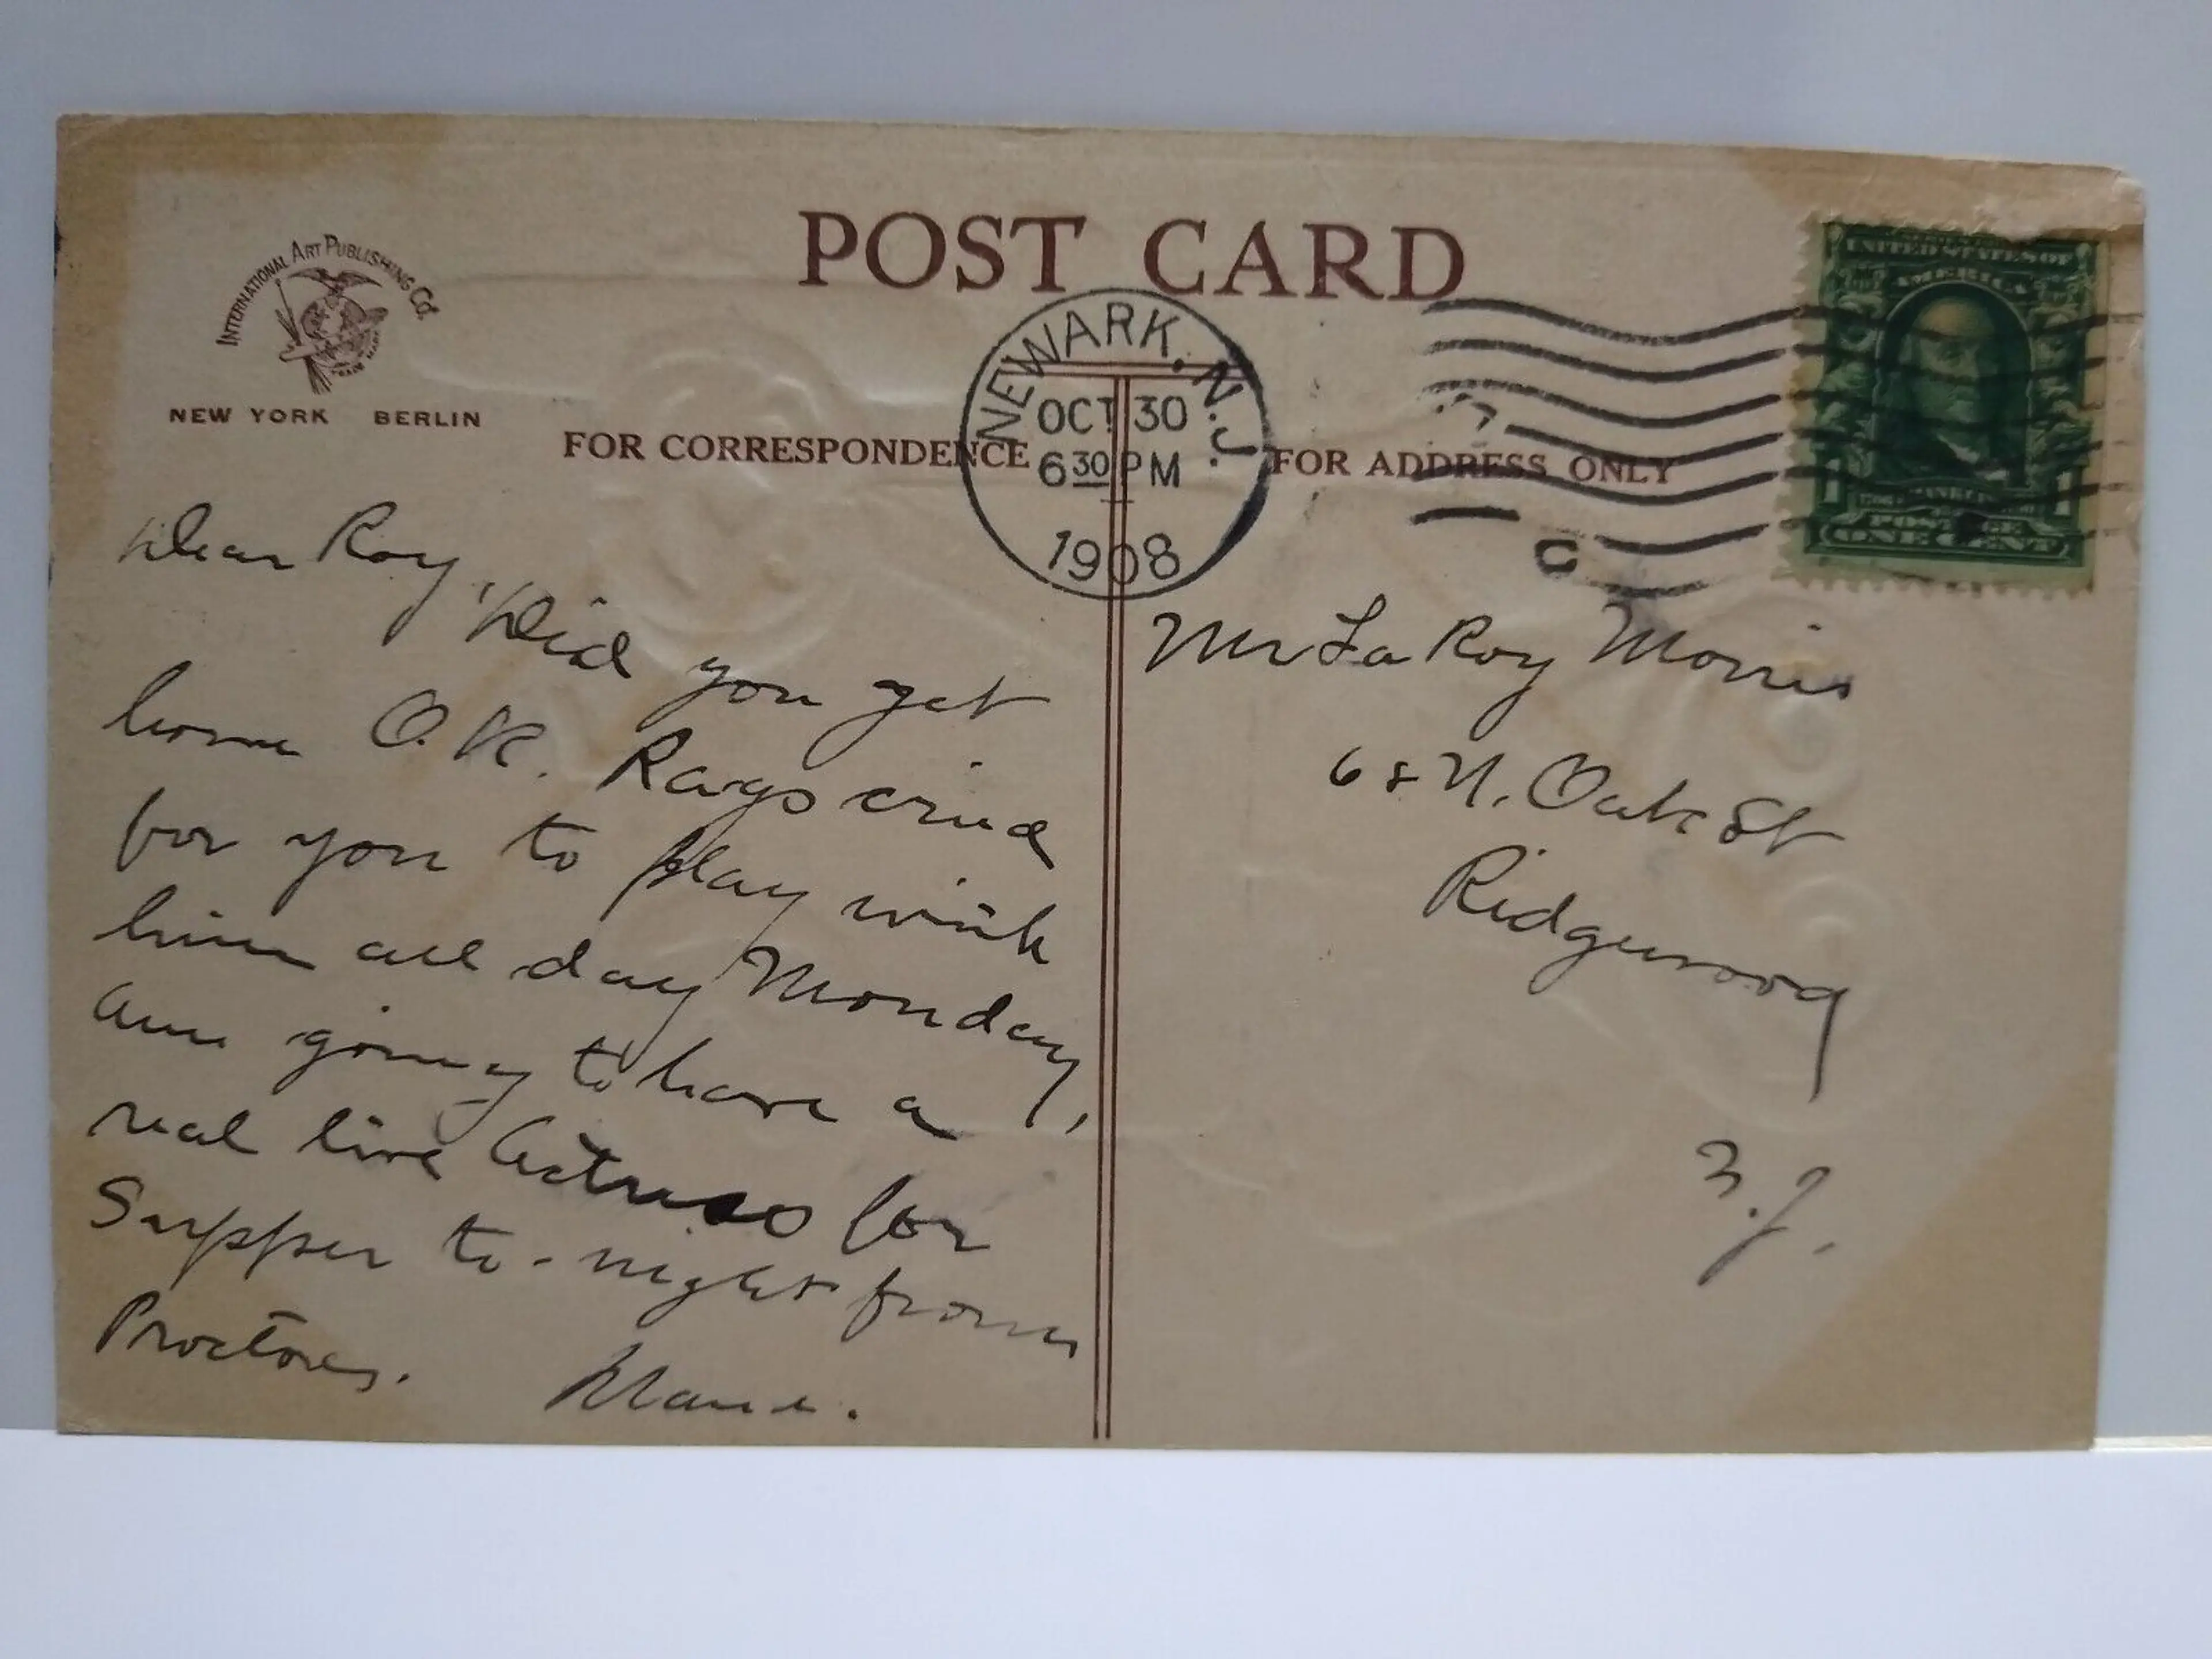 POST CARD
INTERNATIONAL ART PUBLISHING CO.
TRADE MARK
NEW YORK BERLIN
FOR CORRESPONDENCE
FOR ADDRESS ONLY
NEWARK, N.J.
OCT 30
6 30 PM
1908
UNITED STATES OF
AMERICA
1 1
POSTAGE
ONE CENT
Dear Roy, Did you get
home O.K. Rags cried
for you to play with
him all day Monday,
am going to have a
real live Actress for
Supper to-night from
Proctores.
Mr La Roy Morris
68 N. Oak St
Ridgewood
N.J.